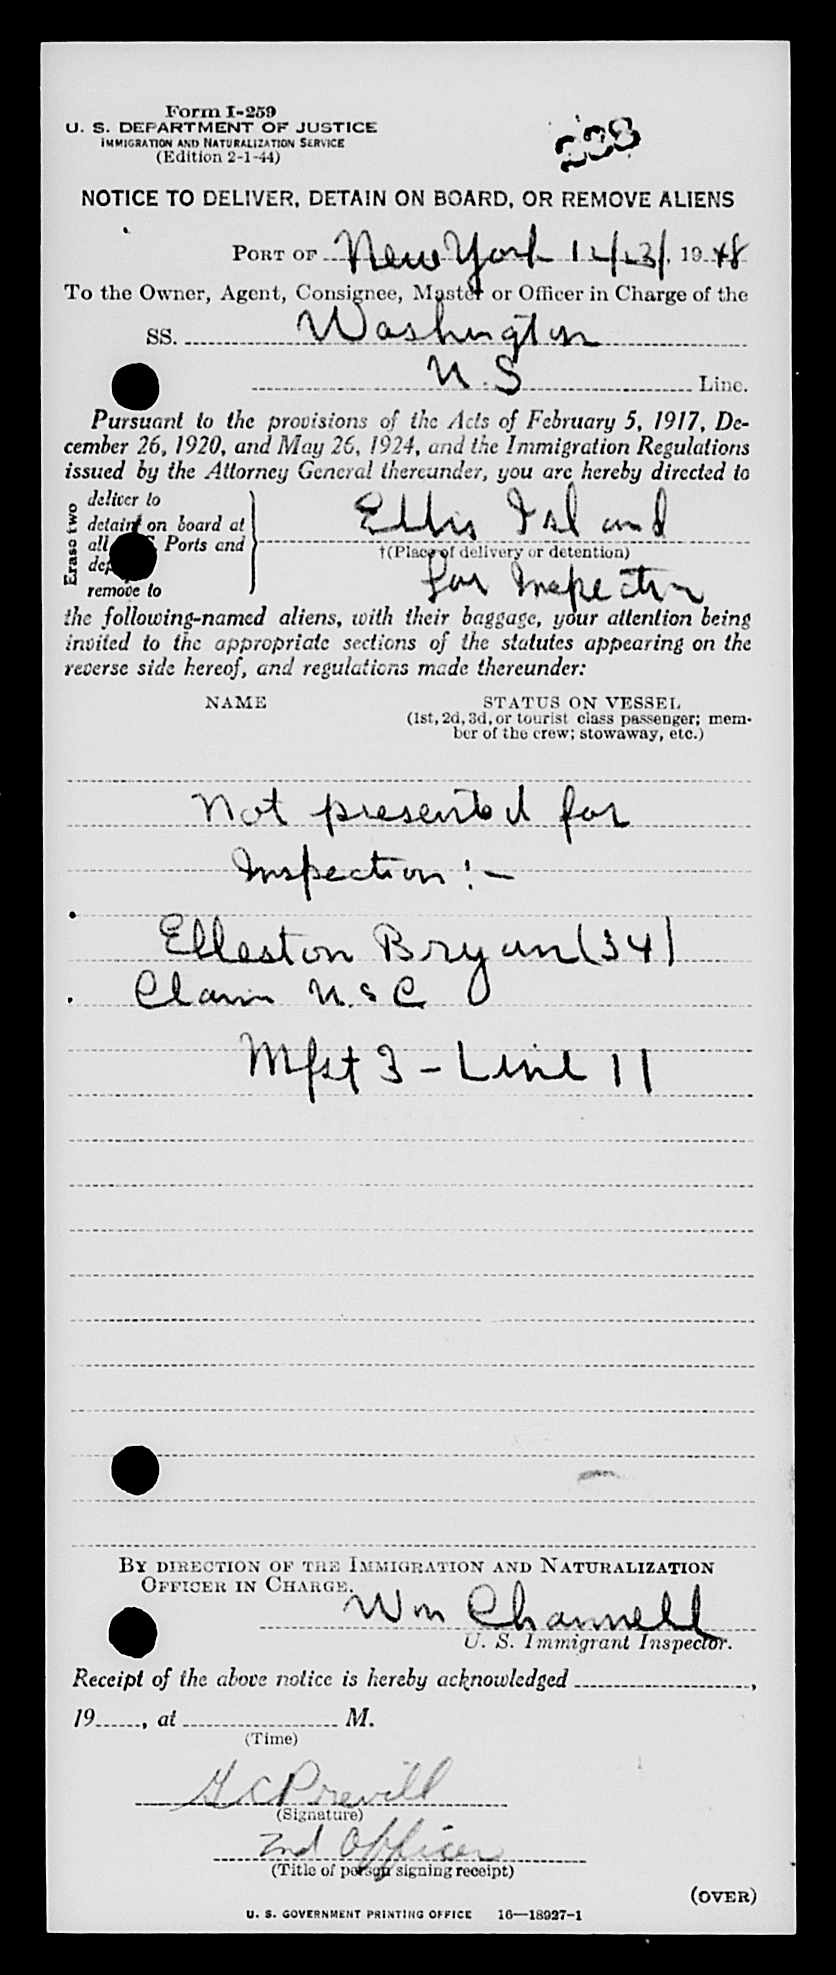 Form I-259
U. S. DEPARTMENT OF JUSTICE
IMMIGRATION AND NATURALIZATION SERVICE
(Edition 2-1-44)
238
NOTICE TO DELIVER, DETAIN ON BOARD, OR REMOVE ALIENS
PORT OF New York 12/23/, 1948
To the Owner, Agent, Consignee, Master or Officer in Charge of the
SS. Washington
U.S Line.
Pursuant to the provisions of the Acts of February 5, 1917, De-
cember 26, 1920, and May 26, 1924, and the Immigration Regulations
issued by the Attorney General thereunder, you are hereby directed to
Erase two
deliver to
detain on board at
all Ports and
remove to
Ellis Island
†(Place of delivery or detention)
for Inspection
the following-named aliens, with their baggage, your attention being
invited to the appropriate sections of the statutes appearing on the
reverse side hereof, and regulations made thereunder:
NAME STATUS ON VESSEL
(1st, 2d, 3d, or tourist class passenger; mem-
ber of the crew; stowaway, etc.)
Not presented for
Inspection:-
Elleston Bryan (34)
Claim U.S C
Mfst 3 - Line 11
BY DIRECTION OF THE IMMIGRATION AND NATURALIZATION
OFFICER IN CHARGE.
Wm Channell
U. S. Immigrant Inspector.
Receipt of the above notice is hereby acknowledged ,
19 , at M.
(Time)
(Signature)
2nd Officer
(Title of person signing receipt)
(OVER)
U. S. GOVERNMENT PRINTING OFFICE 16—18927-1